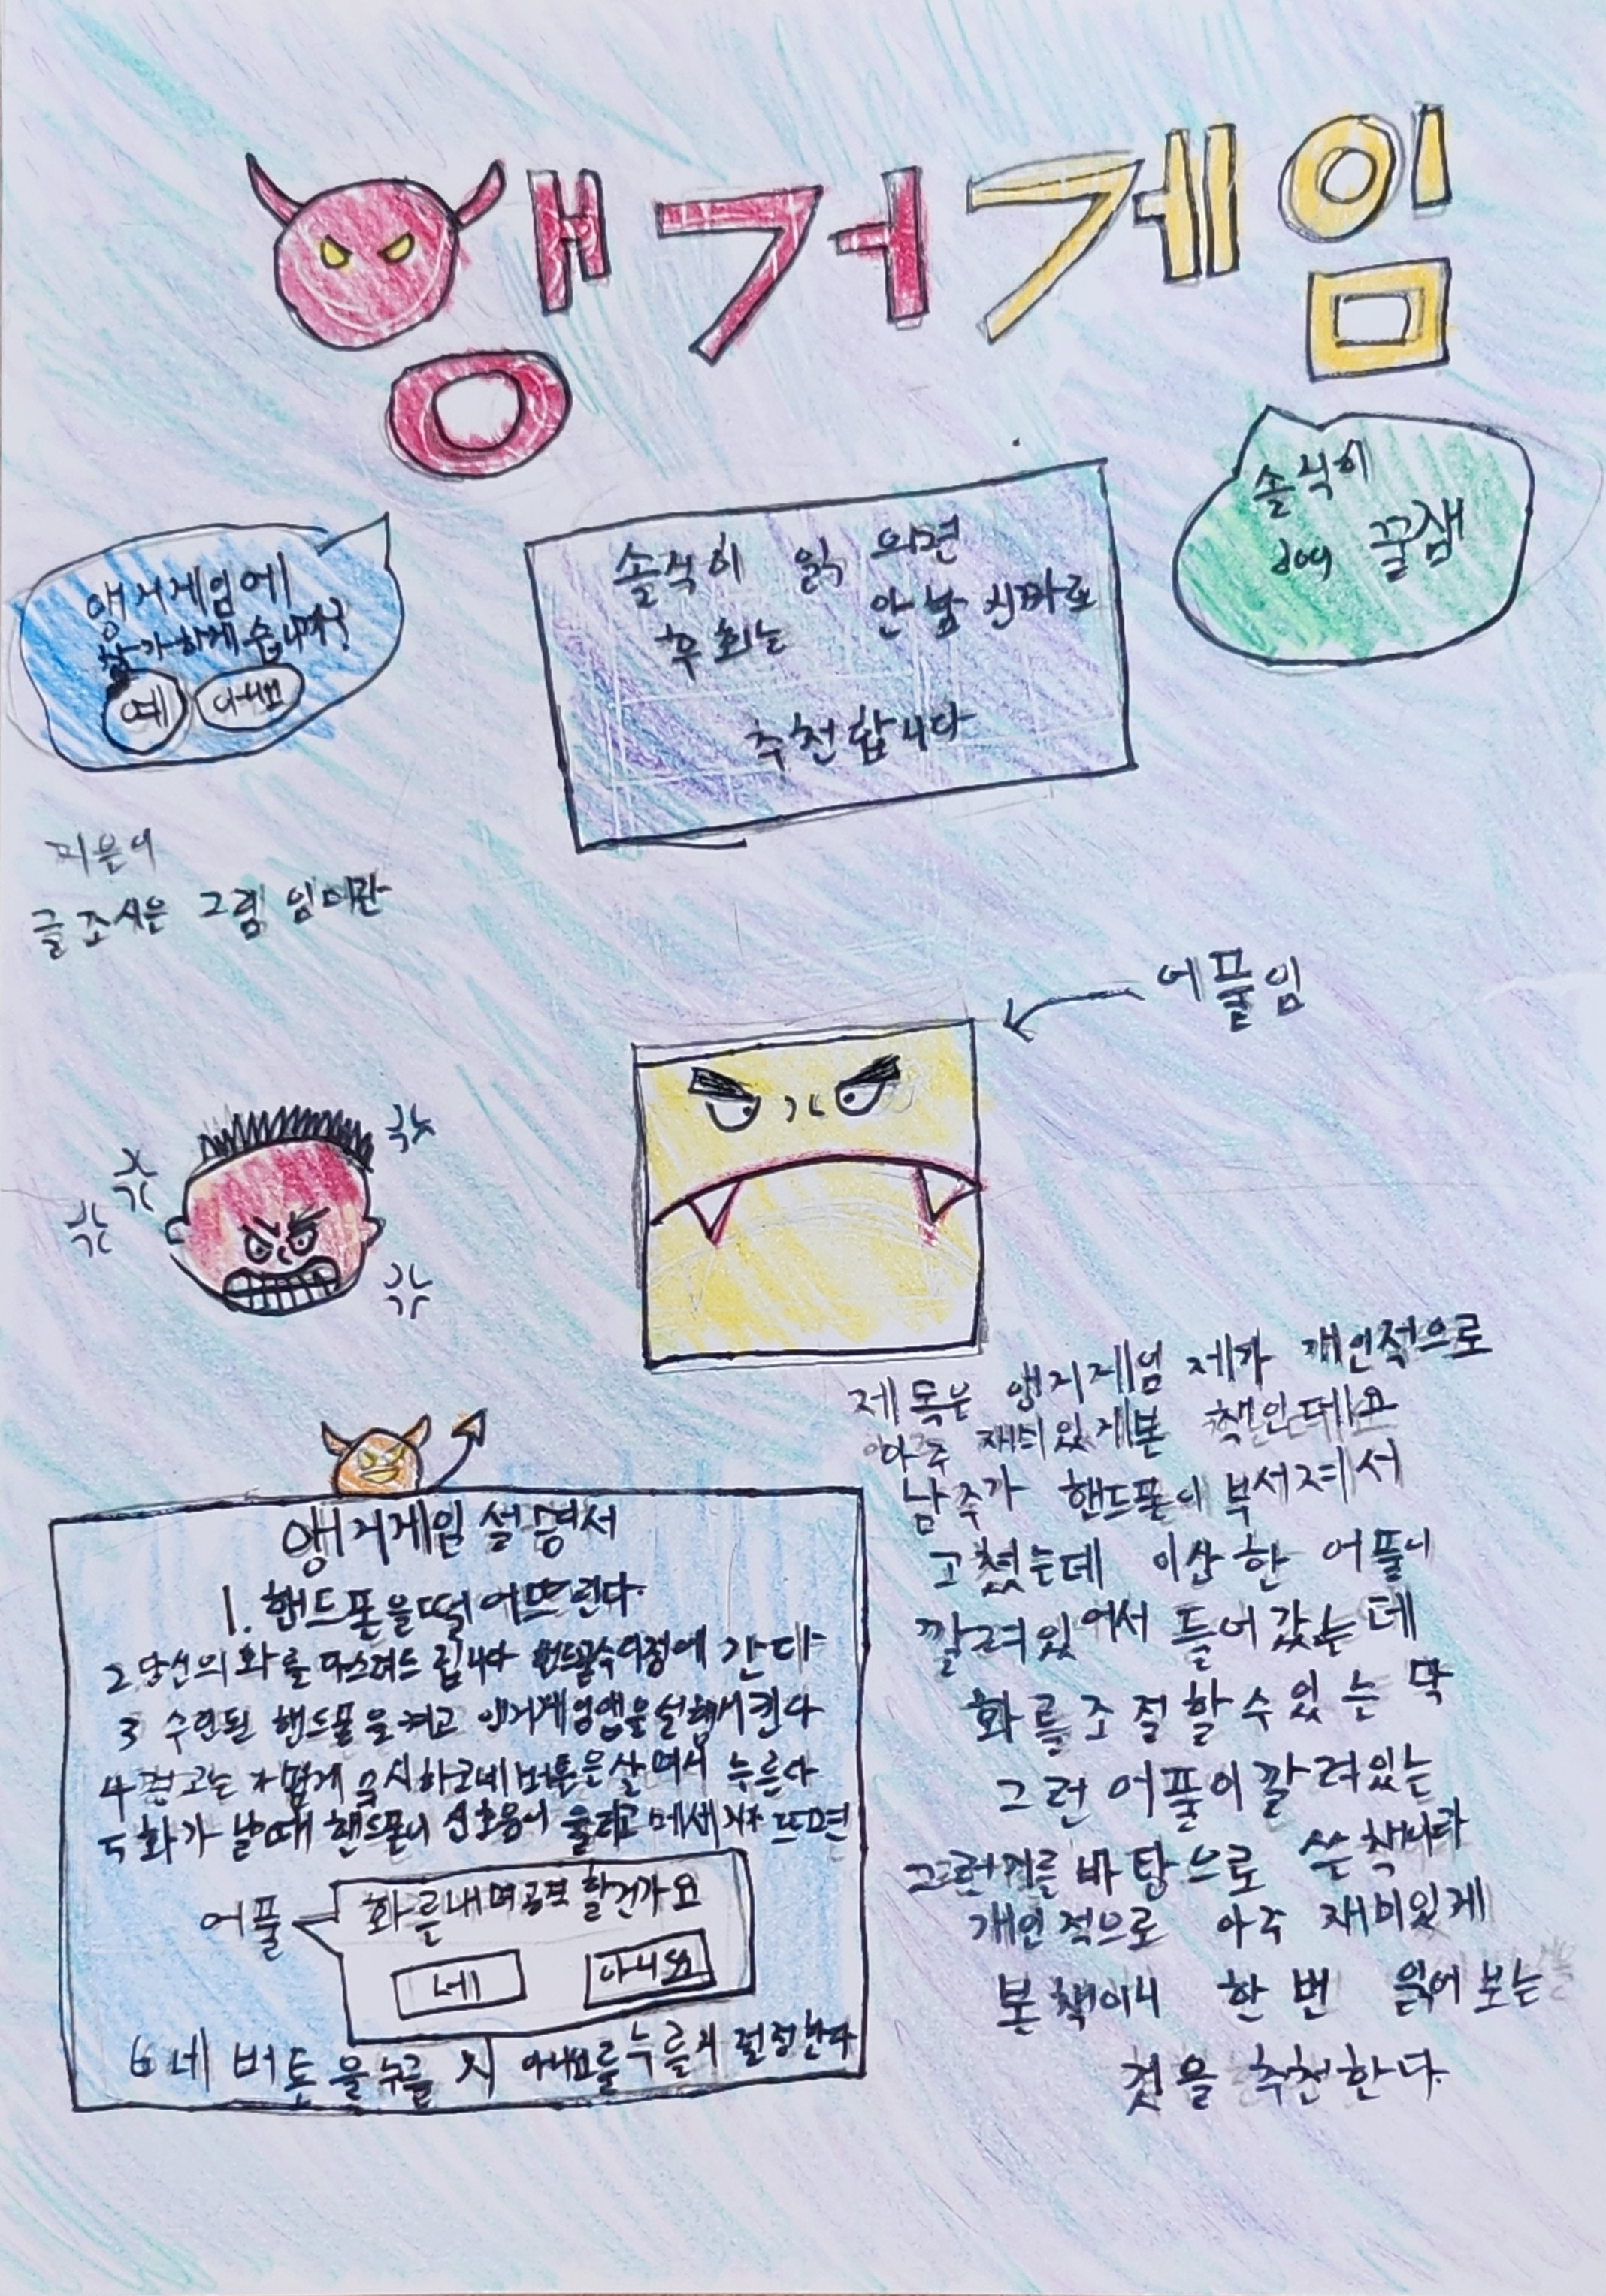 앵거게임
앵거게임에
참가하게습니까?
예 아니요
솔직히 읽
후회는 안남 신까로
추천합니다
솔직히
개꿀잼
지은이
글 조시은 그림 임미란
어플임
제목은 앵거게임 제가 개인적으로
아주 재미있게본 책인데요
남주가 핸드폰이 부서져서
고쳤는데 이상한 어플이
깔려있어서 들어갔는데
화를조절할수있는 막
그런 어플이깔려있는
그런거를 바탕으로 쓴책니다
개인적으로 아주 재미있게
본책이니 한번 읽어보는
것을 추천한다.
앵거게임 설명서
1. 핸드폰을떨어뜨린다.
2 당신의화를 다스려드립니다 핸드폰수리점에 간다
3 수리된 핸드폰을켜고 앵거게임앱을실행시킨다
4 경고는 가볍게 무시하고네버튼을살며시 누른다
5 화가 날때 핸드폰이 신호음이 울리고 메세지가 뜨면
어플
화를내며공격 할건가요
네 아니요
6 네 버튼을누를 시 아니요를누를지 결정한다